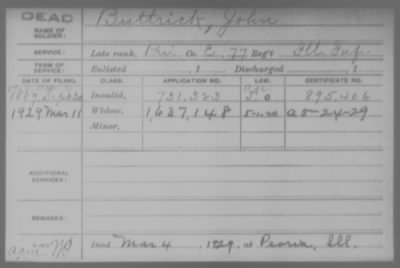 DEAD
Buttrick, John
NAME OF SOLDIER:
SERVICE: Late rank, Pri Co. E, 77 Reg't Ill. Inf.
TERM OF SERVICE: Enlisted , 1 Discharged , 1
DATE OF FILING. CLASS. APPLICATION NO. LAW. CERTIFICATE NO.
1889 Sept 20 Invalid, 731,323 895.406
1929 Mar 11 Widow, 1,637,148 5-1-20 a 5-24-29
Minor,
ADDITIONAL SERVICES:
REMARKS:
Died Mar 4, 1929, at Peoria, Ill.